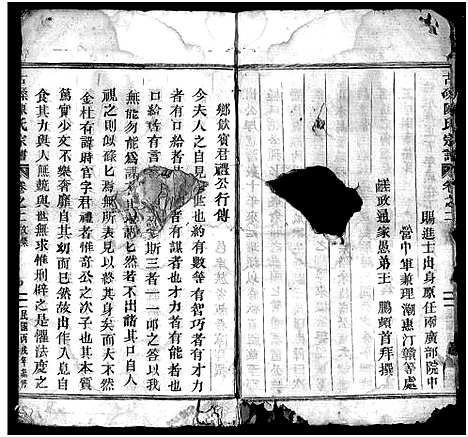 賜進士出身原任兩廣部院中
營中軍兼理潮惠汀贛等處
政通家愚弟王 鵬頓首拜撰
鄉飲賓君禮公行傳
今夫人之自見於世也約有數等有智巧者有才力
者有口給者智
者有謀者也才力者有能者也
口給者有言
斯三者一一叩之答以我
無能勿能為謀
訥訥然若不出諸其口自人
視之則似餘匕為無所表見以終其身矣而夫不然
金杜有諱時官字君禮者惟奇公之次子也其本質
篤實少文不樂奢靡自其幼而已然故出作入息自
食其力與人無競與世無求惟刑辟之是懼法度之
陳氏宗譜 卷之二